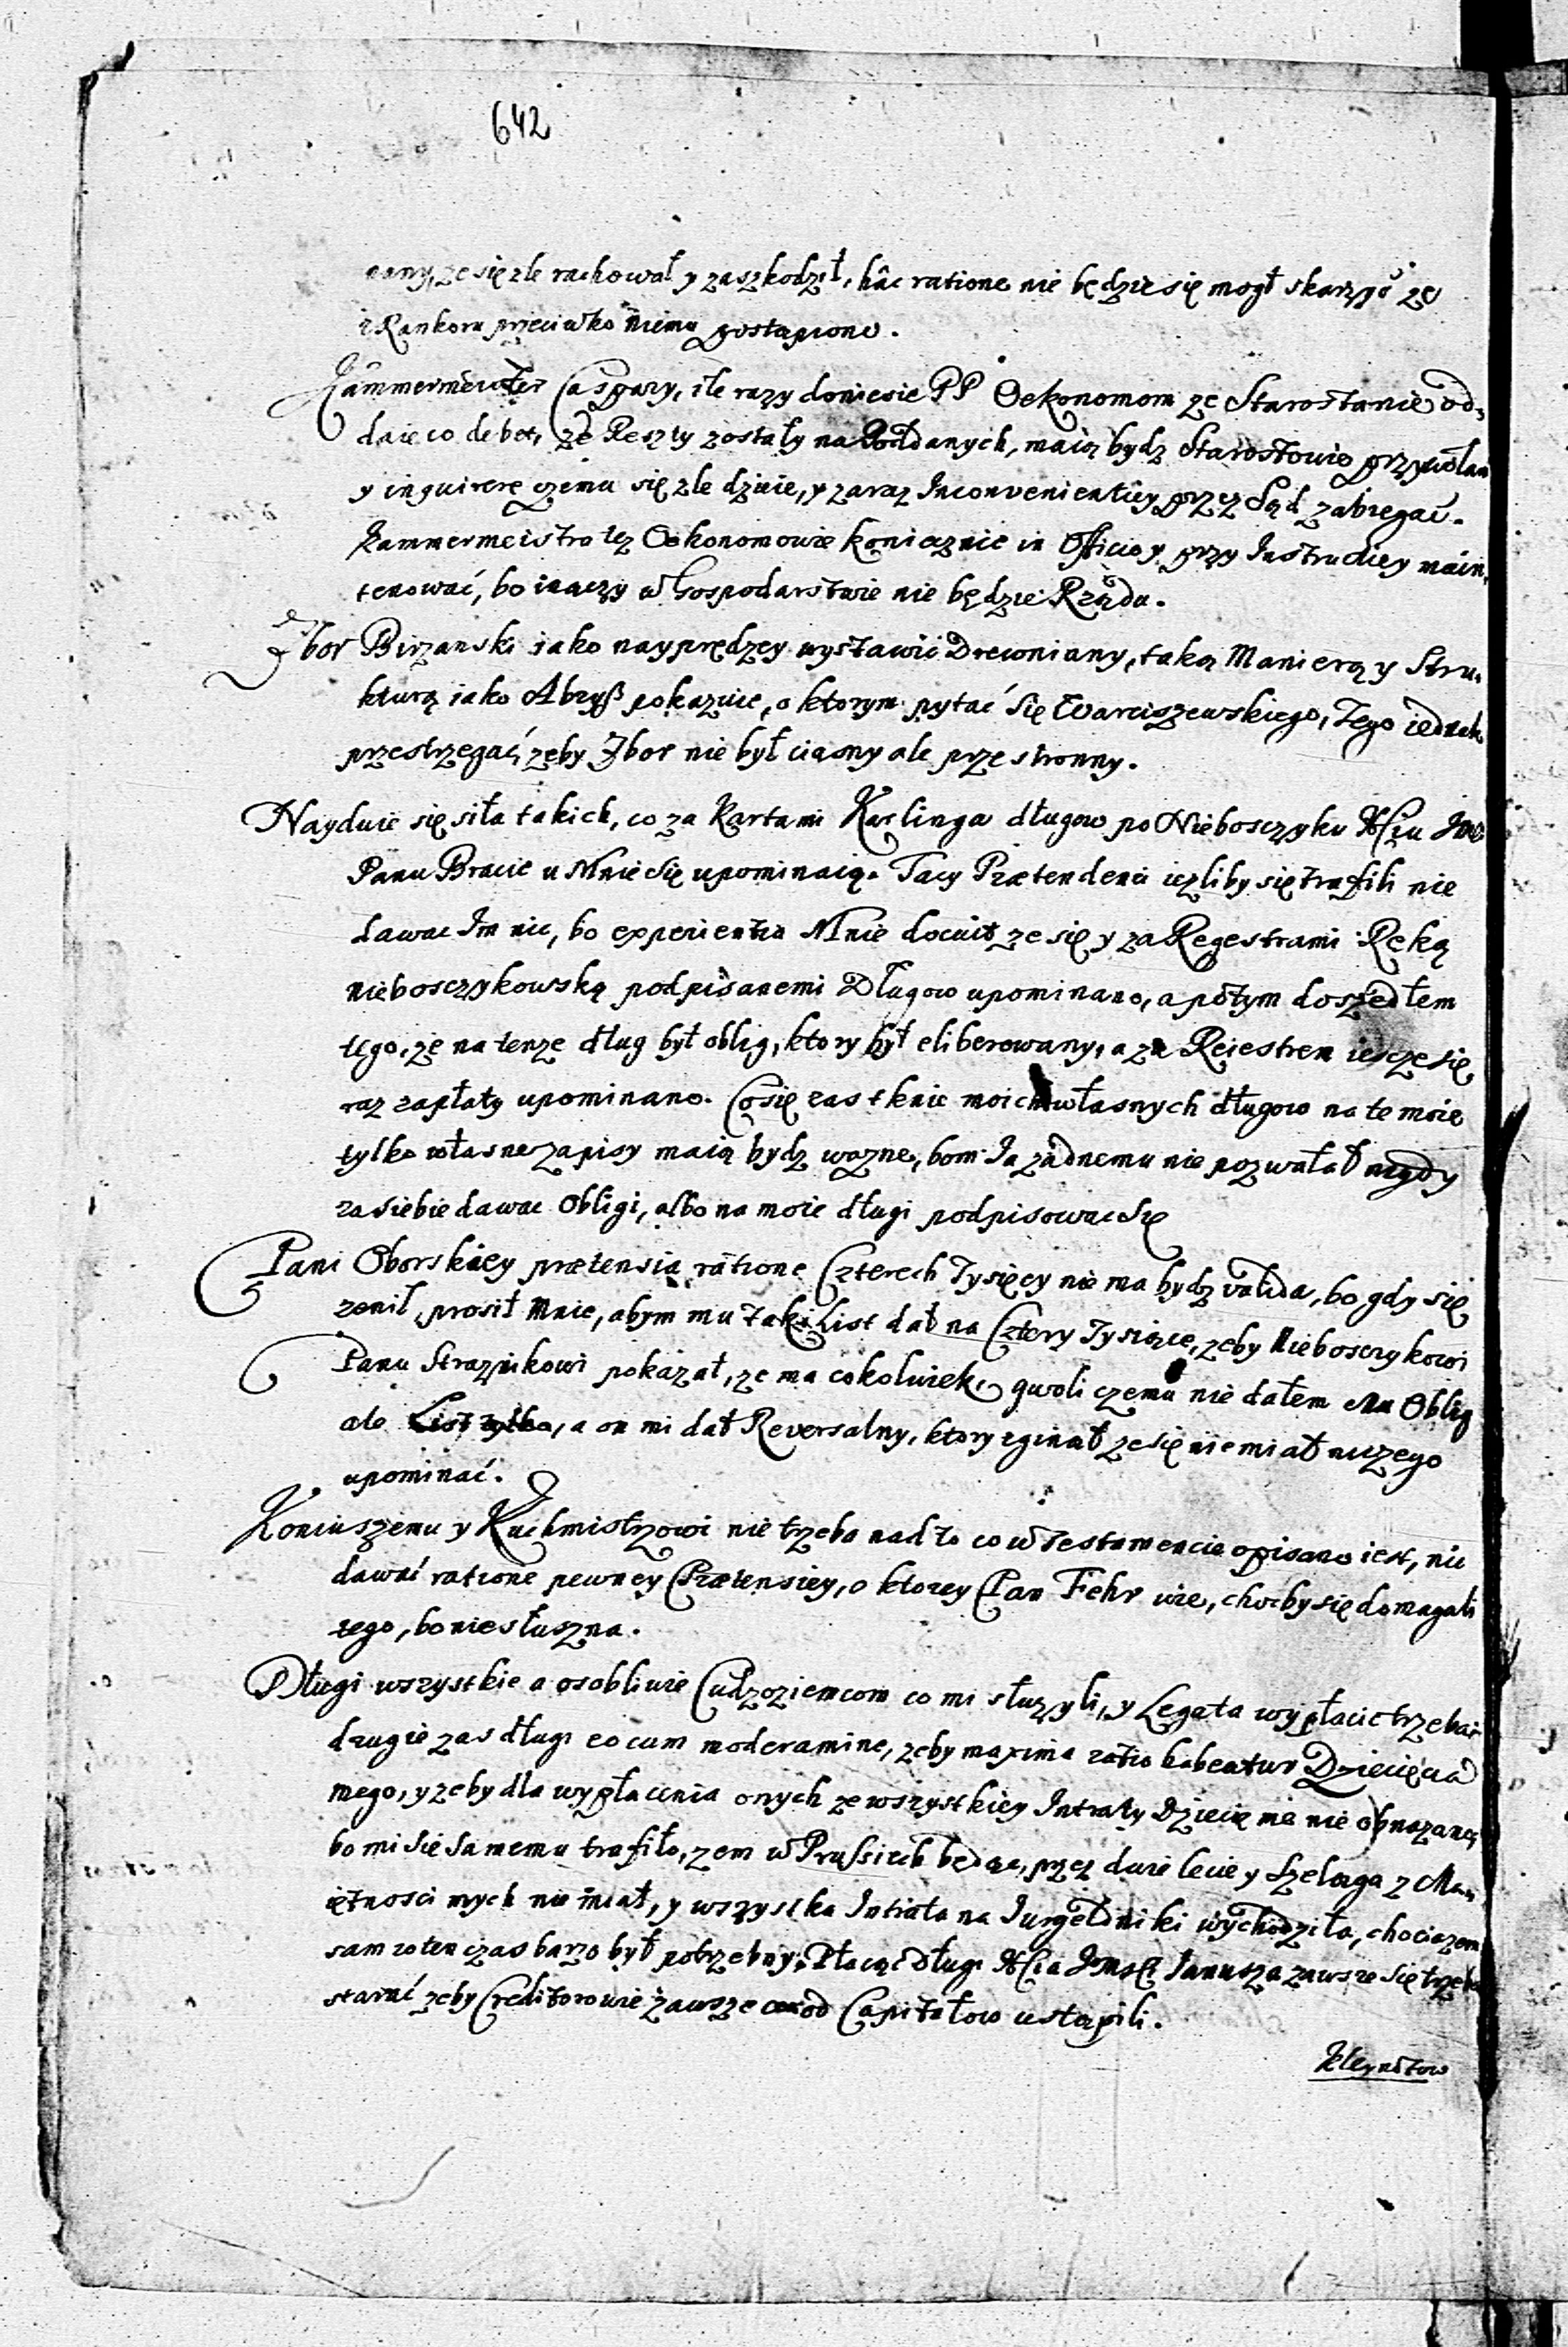 642
nany, ze się zle rachował y zaszkodził, hâc ratione nie będzie się mogł skarzyć ze
z Rankoru przeciwko niemu postąpiono.
Kammermeister Caspary, ile razy doniesie PP Oekonomom ze Starosta nie od-
daie co debet, ze Reszty zostały na Poddanych, maią bydz Starostowie przywołan
y inquirere czemu się zle dzieie, y zaraz Inconvenientiey przez Sąd zabiegać.
Kammermeistra tez Oekonomowie koniecznie in Officio y przy Instructiey main-
tenować, bo inaczy w Gospodarstwie nie będzie Rządu.
Zbor Birzanski iako nayprędzey wystawić Drewniany, taką Manierą y Stru-
kturą iako Abryß pokazuie, o ktorym pytać się Warciszewskiego, Tego iednak
przestrzegać, zeby Zbor nie był ciasny ale przestronny.
Nayduie się siła takich, co za Kartami Karlinga długow po Nieboszczyku Xciu Imci
Panu Bracie u Mnie się upominaią. Tacy Prætendenci iezliby się trafili nie
dawac Im nic, bo experientia Mnie docuit ze się y za Regestrami Ręką
nieboszczykowską podpisanemi Długow upominano, a potym doszedłem
tego, ze na tenze dług był oblig, ktory był eliberowany, a za Reiestrem iescze się
raz zapłaty upominano. Co się zas tknie moich własnych długow na te moie
tylko własne zapisy maią bydz wazne, bom Ia zadnemu nie pozwalał nigdy
za siebie dawac Obligi, albo na moie długi podpisowac się
Pani Oborskiey prætensia ratione Czterech Tysięcy nie ma bydz valida, bo gdy się
zenił, prosił Mnie, abym mu taki List dał na Cztery Tysiące, zeby Nieboszczykowi
Panu Straznikowi pokazał, ze ma cokolwiek, gwoli czemu nie dałem Mu Oblig
ale List tylko, a on mi dał Reversalny, ktory zginał ze się nie miał niczego
upominać.
Koniuszemu y Kuchmistrzowi nie trzeba nad to co w Testamencie opisano iest, nic
dawać ratione pewney Prætensiey, o ktorey Pan Fehr wie, chocby się domagali
tego, bo niesłuszna.
Długi wszystkie a osobliwie Cudzoziemcom co mi słuzyli, y Legata wypłacic trzeba,
drugie zas długi eo cum moderamine, zeby maxima ratio habeatur Dziecięcia
mego, y zeby dla wypłacenia onych ze wszystkiey Intraty Dziecię me nie obnazano,
bo mi się samemu trafiło, zem w Prusiech będąc, przez dwie lecie y szeląga z Ma-
iętnosci mych nie miał, y wszystka Intrata na Iurgeltniki wychodziła, chociazem
sam w ten czas barzo był potrzebny; Płacąc długi Xcia Imsci Ianusza zawsze się trzeba
starać zeby Creditorowie zawsze coś od Capitałow ustąpili.
Kleynotow